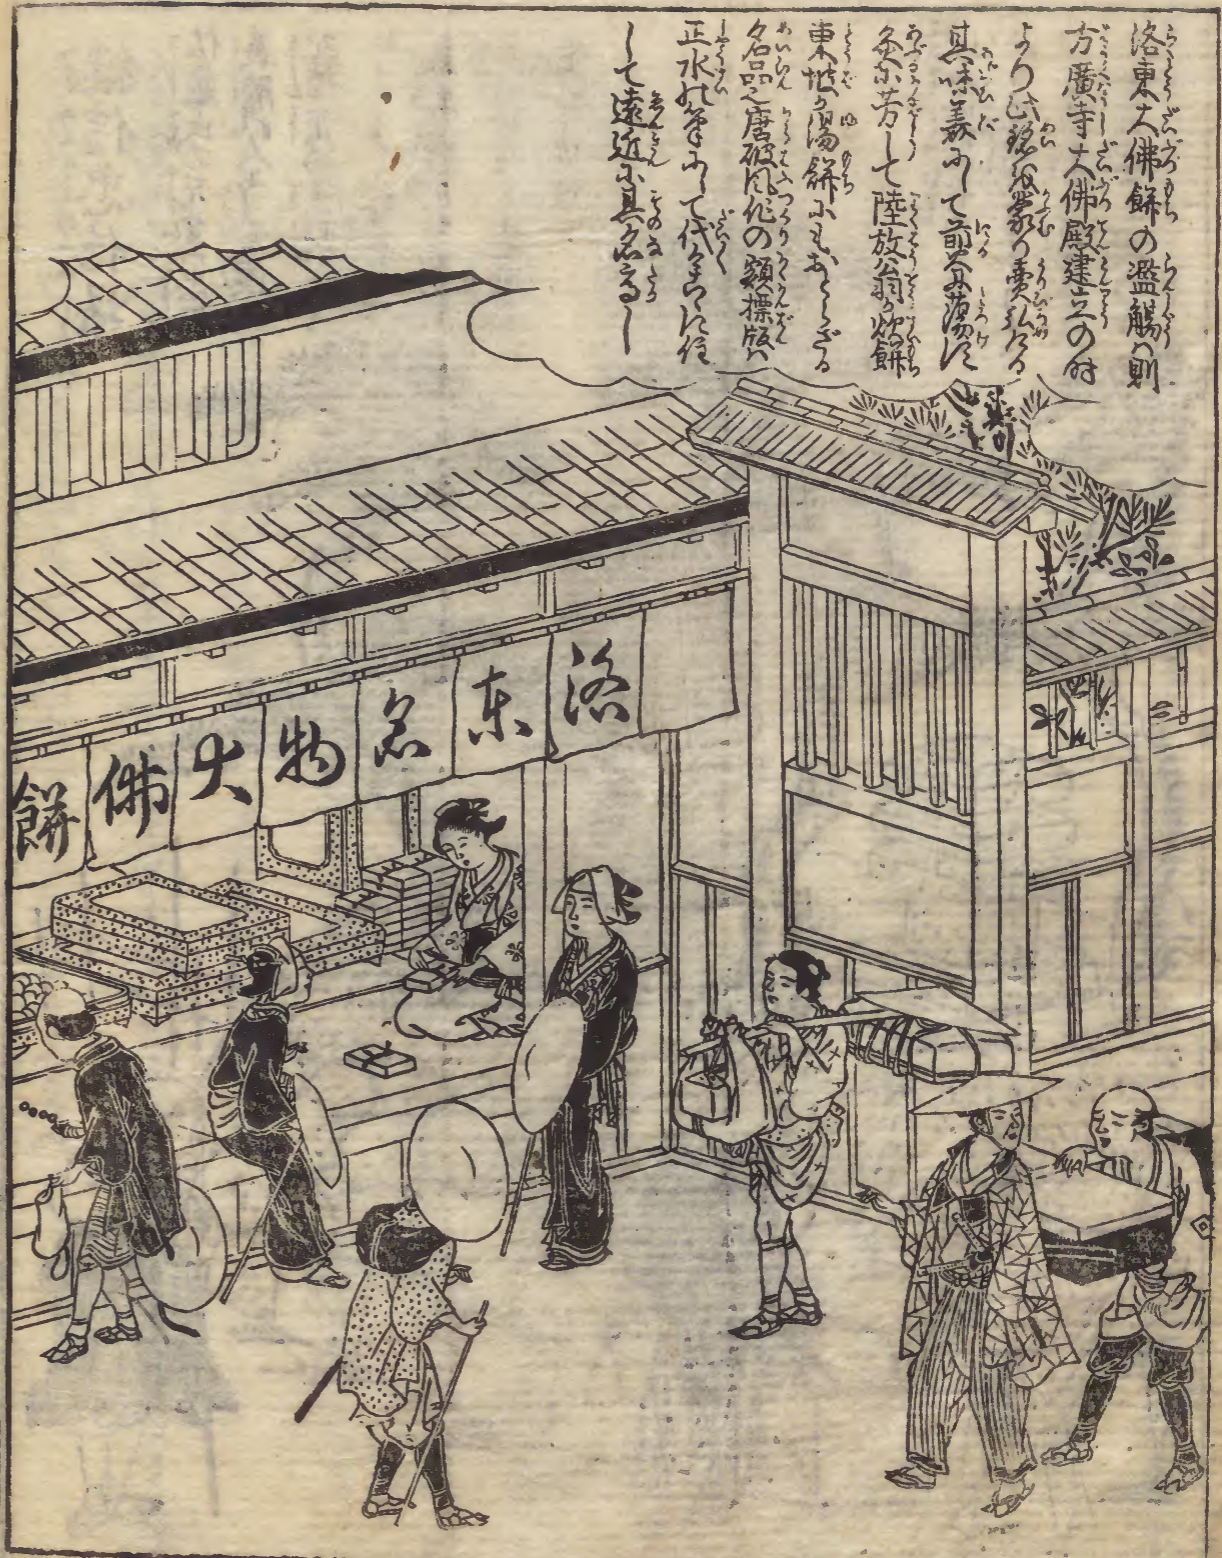 洛東大佛餅の濫觴ハ則
方廣寺大佛殿建立の時
より此銘を蒙り賣弘ける
其味美にして煎るに蕩けず
炙るに芳して陸放翁が炊餅
東坡が湯餅にもおとらざる
名品也唐破風作の額標版ハ
正水の筆にして代々こゝに住
して遠近に其名高し
洛東名物大佛餅